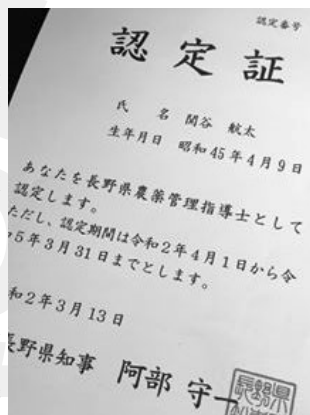 認定番号
認定証
氏 名 関谷 航太
生年月日 昭和45年4月9日
あなたを長野県農薬管理指導士として
認定します。
ただし、認定期間は令和2年4月1日から令
和5年3月31日までとします。
和2年3月13日
長野県知事 阿部 守一